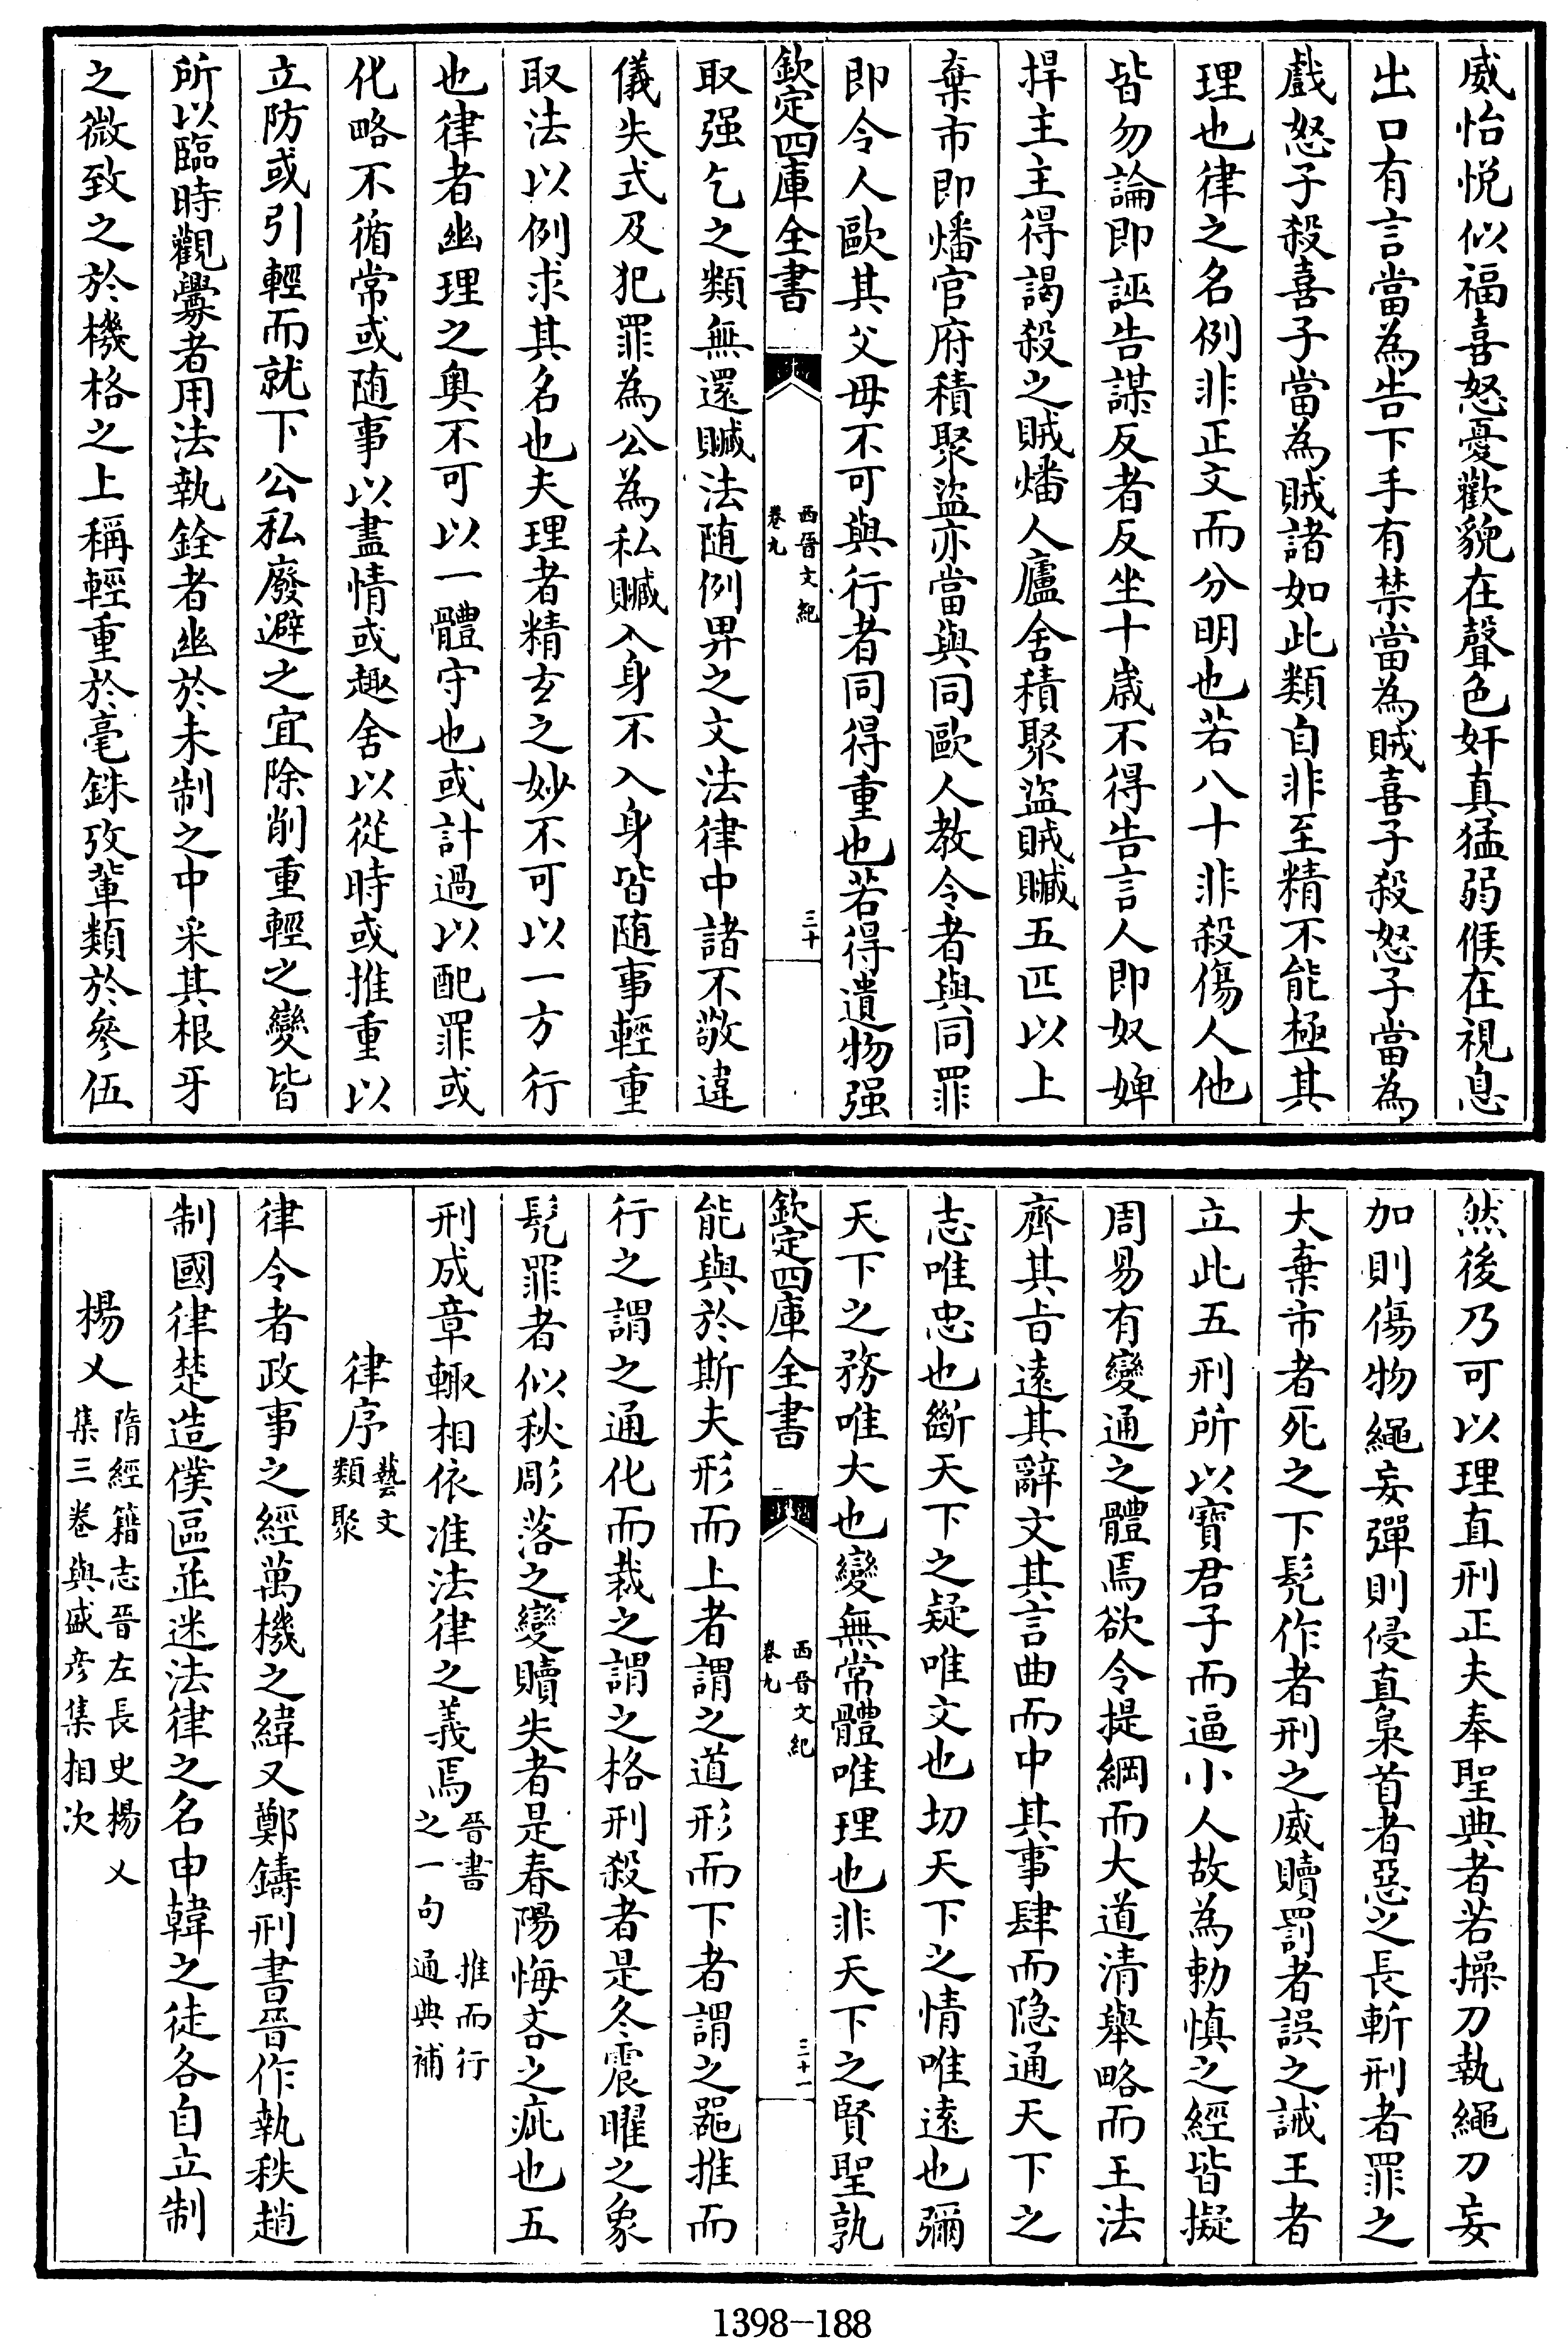 威怡悦似福喜怒憂歡貌在聲色奸真猛弱候在視息
出口有言當為告下手有禁當為賊喜子殺怒子當為
戲怒子殺喜子當為賊諸如此類自非至精不能極其
理也律之名例非正文而分明也若八十非殺傷人他
皆勿論即誣告謀反者反坐十歳不得告言人即奴婢
捍主主得謁殺之賊燔人廬舍積聚盜賊贓五匹以上
棄市即燔官府積聚盜亦當與同歐人教令者與同罪
即令人歐其父毋不可與行者同得重也若得遺物强
欽定四庫全書
西晉文紀
卷九
三十
取强乞之類無還贓法随例畀之文法律中諸不敬違
儀失式及犯罪為公為私贓入身不入身皆随事輕重
取法以例求其名也夫理者精玄之妙不可以一方行
也律者幽理之奥不可以一體守也或計過以配罪或
化略不循常或随事以盡情或趣舍以從時或推重以
立防或引輕而就下公私廢避之宜除削重輕之變皆
所以臨時觀釁者用法執銓者幽於未制之中采其根牙
之微致之於機格之上稱輕重於毫銖攷輩類於參伍
然後乃可以理直刑正夫奉聖典者若操刀執繩刀妄
加則傷物繩妄彈則侵直梟首者惡之長斬刑者罪之
大棄市者死之下髠作者刑之威贖罰者誤之誡王者
立此五刑所以寶君子而逼小人故為勅慎之經皆擬
周易有變通之體焉欲令提綱而大道清舉略而王法
齊其㫖遠其辭文其言曲而中其事肆而隐通天下之
志唯忠也斷天下之疑唯文也切天下之情唯遠也彌
天下之務唯大也變無常體唯理也非天下之賢聖孰
欽定四庫全書
西晉文紀
卷九
三十一
能與於斯夫形而上者謂之道形而下者謂之噐推而
行之謂之通化而裁之謂之格刑殺者是冬震曜之象
髠罪者似秋彫落之變贖失者是春陽悔吝之疵也五
刑成章輙相依准法律之義焉晉書 推而行
之一句 通典補
律序藝文
類聚
律令者政事之經萬機之緯又鄭鑄刑書晉作執秩趙
制國律楚造僕區並述法律之名申韓之徒各自立制
楊乂隋經籍志晉左長史楊乂
集三卷與盛彦集相次
1398-188